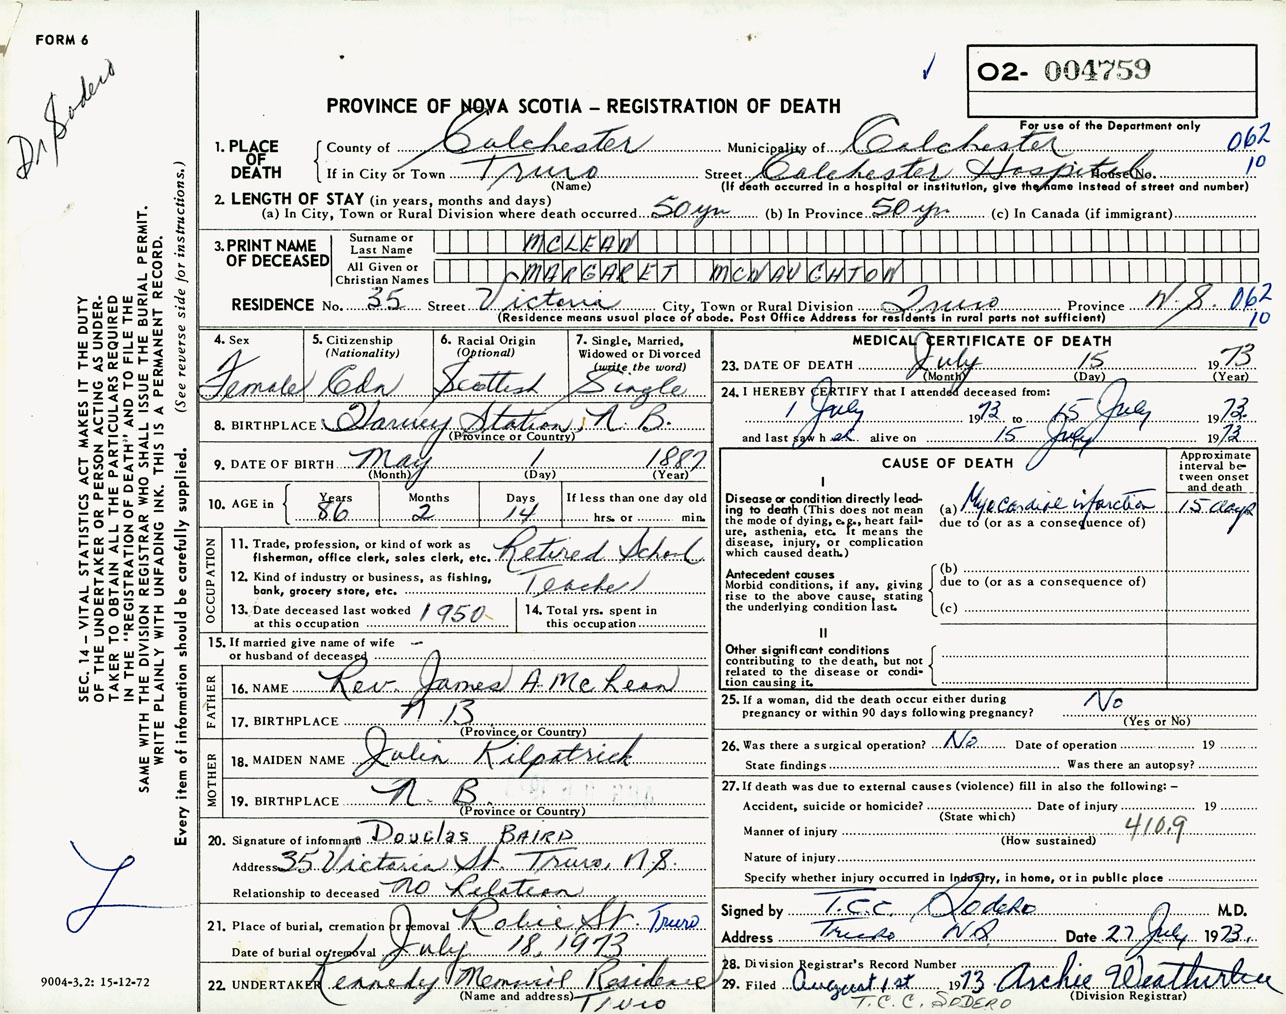 FORM 6
Dr Sodero
O2- 004759
PROVINCE OF NOVA SCOTIA – REGISTRATION OF DEATH
For use of the Department only
1. PLACE OF DEATH
County of Colchester Municipality of Colchester 062
If in City or Town Truro Street Colchester Hospital House No. 10
(Name) (If death occurred in a hospital or institution, give the name instead of street and number)
2. LENGTH OF STAY (in years, months and days)
(a) In City, Town or Rural Division where death occurred 50 yrs (b) In Province 50 yrs (c) In Canada (if immigrant)
3. PRINT NAME OF DECEASED
Surname or Last Name MCLEAN
All Given or Christian Names MARGARET MCNAUGHTON
RESIDENCE No. 35 Street Victoria City, Town or Rural Division Truro Province N.S. 062
(Residence means usual place of abode. Post Office Address for residents in rural parts not sufficient) 10
4. Sex Female
5. Citizenship (Nationality) Cdn
6. Racial Origin (Optional) Scottish
7. Single, Married, Widowed or Divorced (write the word) Single
8. BIRTHPLACE Harvey Station, N.B.
(Province or Country)
9. DATE OF BIRTH May 1 1887
(Month) (Day) (Year)
10. AGE in Years 86 Months 2 Days 14 If less than one day old hrs. or min.
OCCUPATION
11. Trade, profession, or kind of work as fisherman, office clerk, sales clerk, etc. Retired School
12. Kind of industry or business, as fishing, bank, grocery store, etc. Teacher
13. Date deceased last worked at this occupation 1950
14. Total yrs. spent in this occupation
15. If married give name of wife or husband of deceased —
FATHER
16. NAME Rev. James A. McLean
17. BIRTHPLACE N.B.
(Province or Country)
MOTHER
18. MAIDEN NAME Julia Kilpatrick
19. BIRTHPLACE N.B.
(Province or Country)
20. Signature of informant Douglas BAIRD
Address 35 Victoria St. Truro, N.S.
Relationship to deceased no relation
21. Place of burial, cremation or removal Robie St. Truro
Date of burial or removal July 18, 1973
22. UNDERTAKER Kennedy Memorial Residence
(Name and address) Truro
MEDICAL CERTIFICATE OF DEATH
23. DATE OF DEATH July 15 1973
(Month) (Day) (Year)
24. I HEREBY CERTIFY that I attended deceased from:
1 July 1973 to 15 July 1973.
and last saw h er alive on 15 July 1973
CAUSE OF DEATH
Approximate interval between onset and death
I
Disease or condition directly leading to death (This does not mean the mode of dying, e.g., heart failure, asthenia, etc. It means the disease, injury, or complication which caused death.)
(a) Myocardial infarction 15 days
due to (or as a consequence of)
Antecedent causes
Morbid conditions, if any, giving rise to the above cause, stating the underlying condition last.
(b)
due to (or as a consequence of)
(c)
II
Other significant conditions contributing to the death, but not related to the disease or condition causing it.
25. If a woman, did the death occur either during pregnancy or within 90 days following pregnancy? No
(Yes or No)
26. Was there a surgical operation? No Date of operation 19
State findings Was there an autopsy?
27. If death was due to external causes (violence) fill in also the following: –
Accident, suicide or homicide? Date of injury 19
(State which)
Manner of injury 410.9
(How sustained)
Nature of injury
Specify whether injury occurred in industry, in home, or in public place
Signed by T.C.C. Sodero M.D.
Address Truro N.S. Date 27 July 1973.
28. Division Registrar's Record Number
29. Filed August 1st 1973 Archie Weatherbee
(Division Registrar)
T.C.C. SODERO
SEC. 14 – VITAL STATISTICS ACT MAKES IT THE DUTY
OF THE UNDERTAKER OR PERSON ACTING AS UNDER-
TAKER TO OBTAIN ALL THE PARTICULARS REQUIRED
IN THE "REGISTRATION OF DEATH" AND TO FILE THE
SAME WITH THE DIVISION REGISTRAR WHO SHALL ISSUE THE BURIAL PERMIT.
WRITE PLAINLY WITH UNFADING INK. THIS IS A PERMANENT RECORD.
Every item of information should be carefully supplied. (See reverse side for instructions.)
9004-3.2: 15-12-72